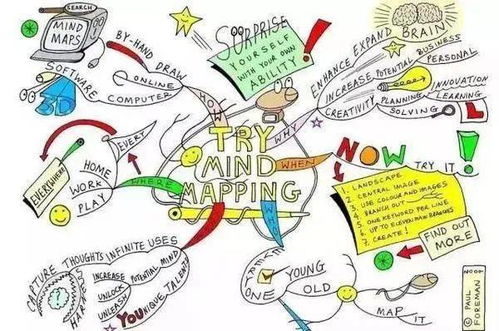 SEARCH
MIND
MAPS
BY-HAND
DRAW
SOFTWARE
ONLINE
COMPUTER
3D
HOW
SURPRISE
YOURSELF
WITH YOUR OWN
ABILITY
!
ENHANCE
EXPAND
BRAIN
INCREASE
POTENTIAL
BUSINESS
PERSONAL
CREATIVITY
PLANNING
INNOVATION
LEARNING
SOLVING
L
WHY
TRY
MIND
MAPPING
EVERY
EVERYWHERE
HOME
WORK
PLAY
WHERE
WHEN
NOW
TRY IT
!
1. LANDSCAPE
2. CENTRAL IMAGE
3. USE COLOUR AND IMAGES
4. BRANCH OUT
5. ONE KEYWORD PER LINE
6. UP TO ELEVEN MAIN BRANCHES
7. CREATE!
FIND OUT
MORE
CAPTURE
THOUGHTS
INFINITE
USES
INCREASE
POTENTIAL
MIND
UNLOCK
UNLEASH
YOUNIQUE
TALENT
WHO
EVERY
ONE
YOUNG
OLD
MAP
IT
© PAUL
FOREMAN